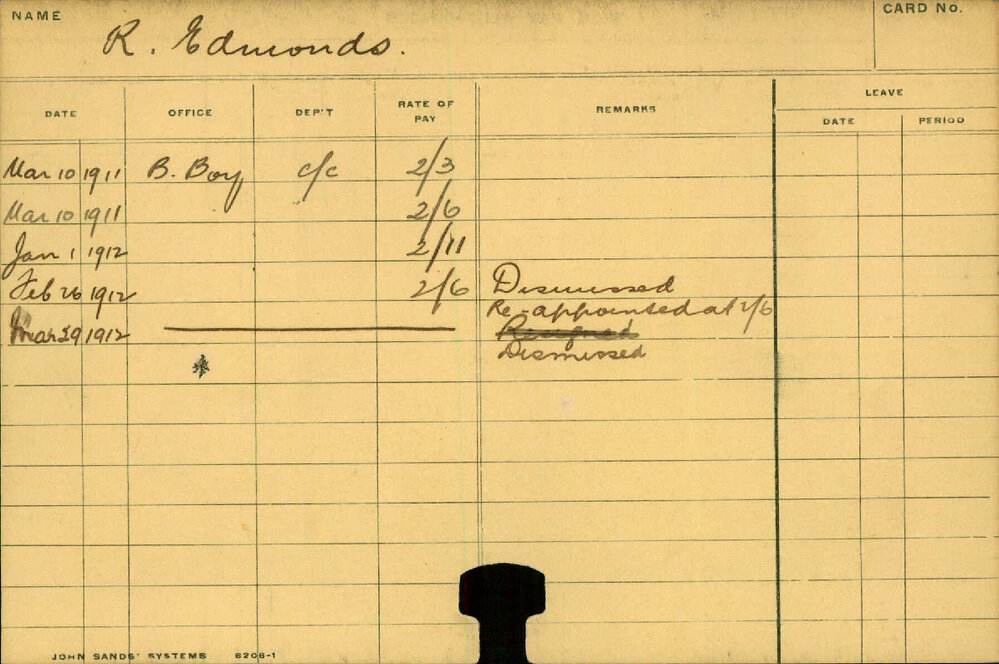 NAME R. Edmonds. CARD No.
LEAVE
DATE OFFICE DEP'T RATE OF PAY REMARKS DATE PERIOD
Mar 10 1911 B. Boy c/c 2/3
Mar 10 1911 2/6
Jan 1 1912 2/11
Feb 26 1912 2/6 Dismissed
Re-appointed at 2/6
Mar 29 1912 Resigned
Dismissed
JOHN SANDS' SYSTEMS 6206-1